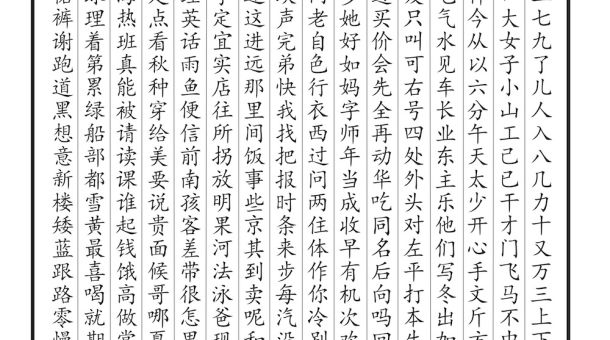 七九了儿人入八几力十又万三上下
大女子小山工己已干才门飞马不中
今从以六分午天太少开心手文斤方
气水见车长业东主乐他们写冬出加
只叫可右号四处外头对左平打本生
买价会先全再动华吃同名后向吗回
她好如妈字师年当成收早有机次欢
老自色行衣西过问两住体作你冷别
声完弟快我找把报时条来步每汽没
这进远那里间饭事些京其到卖呢和
定宜实店往所拐放明果河法泳爸现
英话雨鱼便信前南孩客差带很怎
点看秋种穿给美要说贵面候哥哪夏
热班真能被请读课谁起钱饿高做常
理着第累绿船部都雪黄最喜喝就期
裤谢跑道黑想意新楼矮蓝跟路零慢